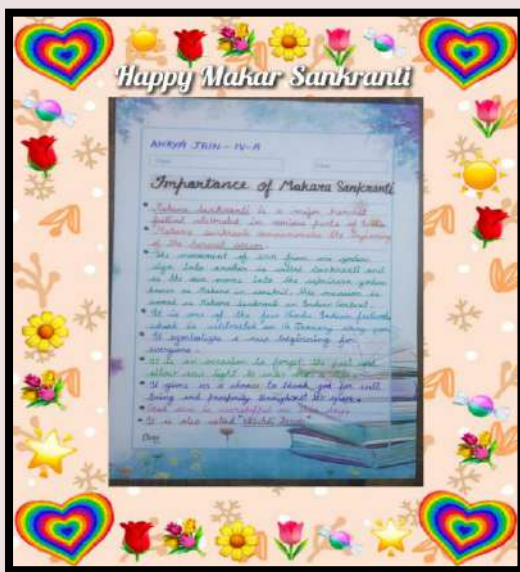 Happy Makar Sankranti
ANKYA JAIN - IV-A
Importance of Makara Sankranti
Makara Sankranti is a major harvest
festival celebrated in various parts of India
Makara sankranti commemorates the beginning
of the harvest season.
The movement of sun from one zodiac
sign into another is called Sankranti and
as the sun moves into the capricorn zodiac
known as Makara in sanskrit, this occasion is
named as Makara Sankranti in Indian Context.
It is one of the few Hindu Indian festivals
which is celebrated on 14 January every year.
It symbolises a new beginning for
everyone.
It is an occasion to forget the past and
allow new light to
It gives us a chance to thank god for well
being and prosperity throughout the year.
God sun is worshipped on this day.
It is also called "